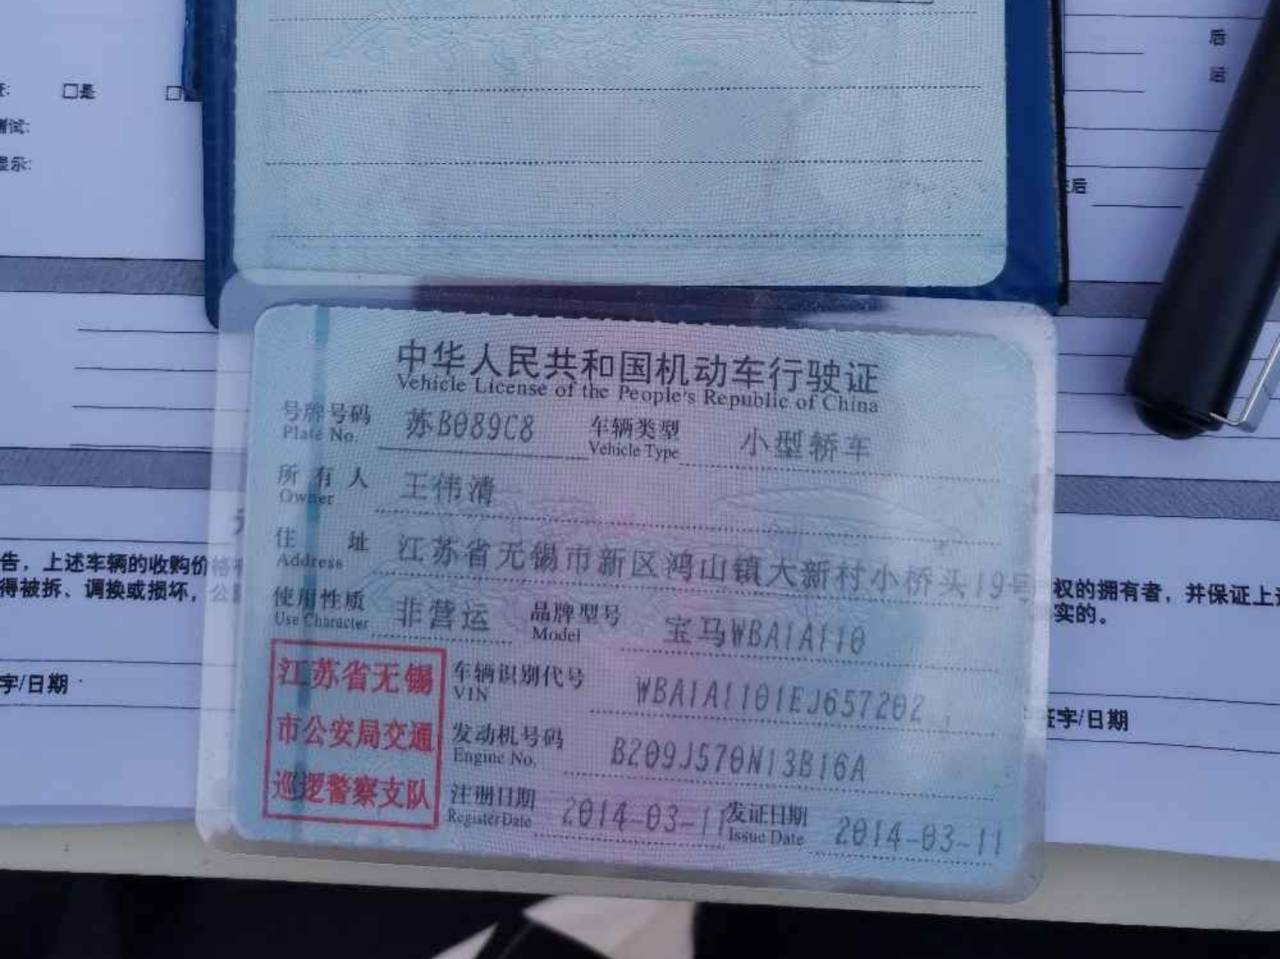 后
□是
后
中华人民共和国机动车行驶证
Vehicle License of the People's Republic of China
号牌号码 苏B089C8 车辆类型 小型轿车
Plate No. Vehicle Type
所有人 王伟清
Owner
住址 江苏省无锡市新区鸿山镇大新村小桥头19号
Address
使用性质 非营运 品牌型号 宝马WBA1A110
Use Character Model
告，上述车辆的收购价格
权的拥有者，并保证上
得被拆、调换或损坏，
实的。
江苏省无锡
市公安局交通
巡逻警察支队
车辆识别代号 WBA1A1101EJ657202
VIN
发动机号码 B209J570N13B16A
Engine No.
注册日期 2014-03-11 发证日期 2014-03-11
Register Date Issue Date
字/日期
字/日期